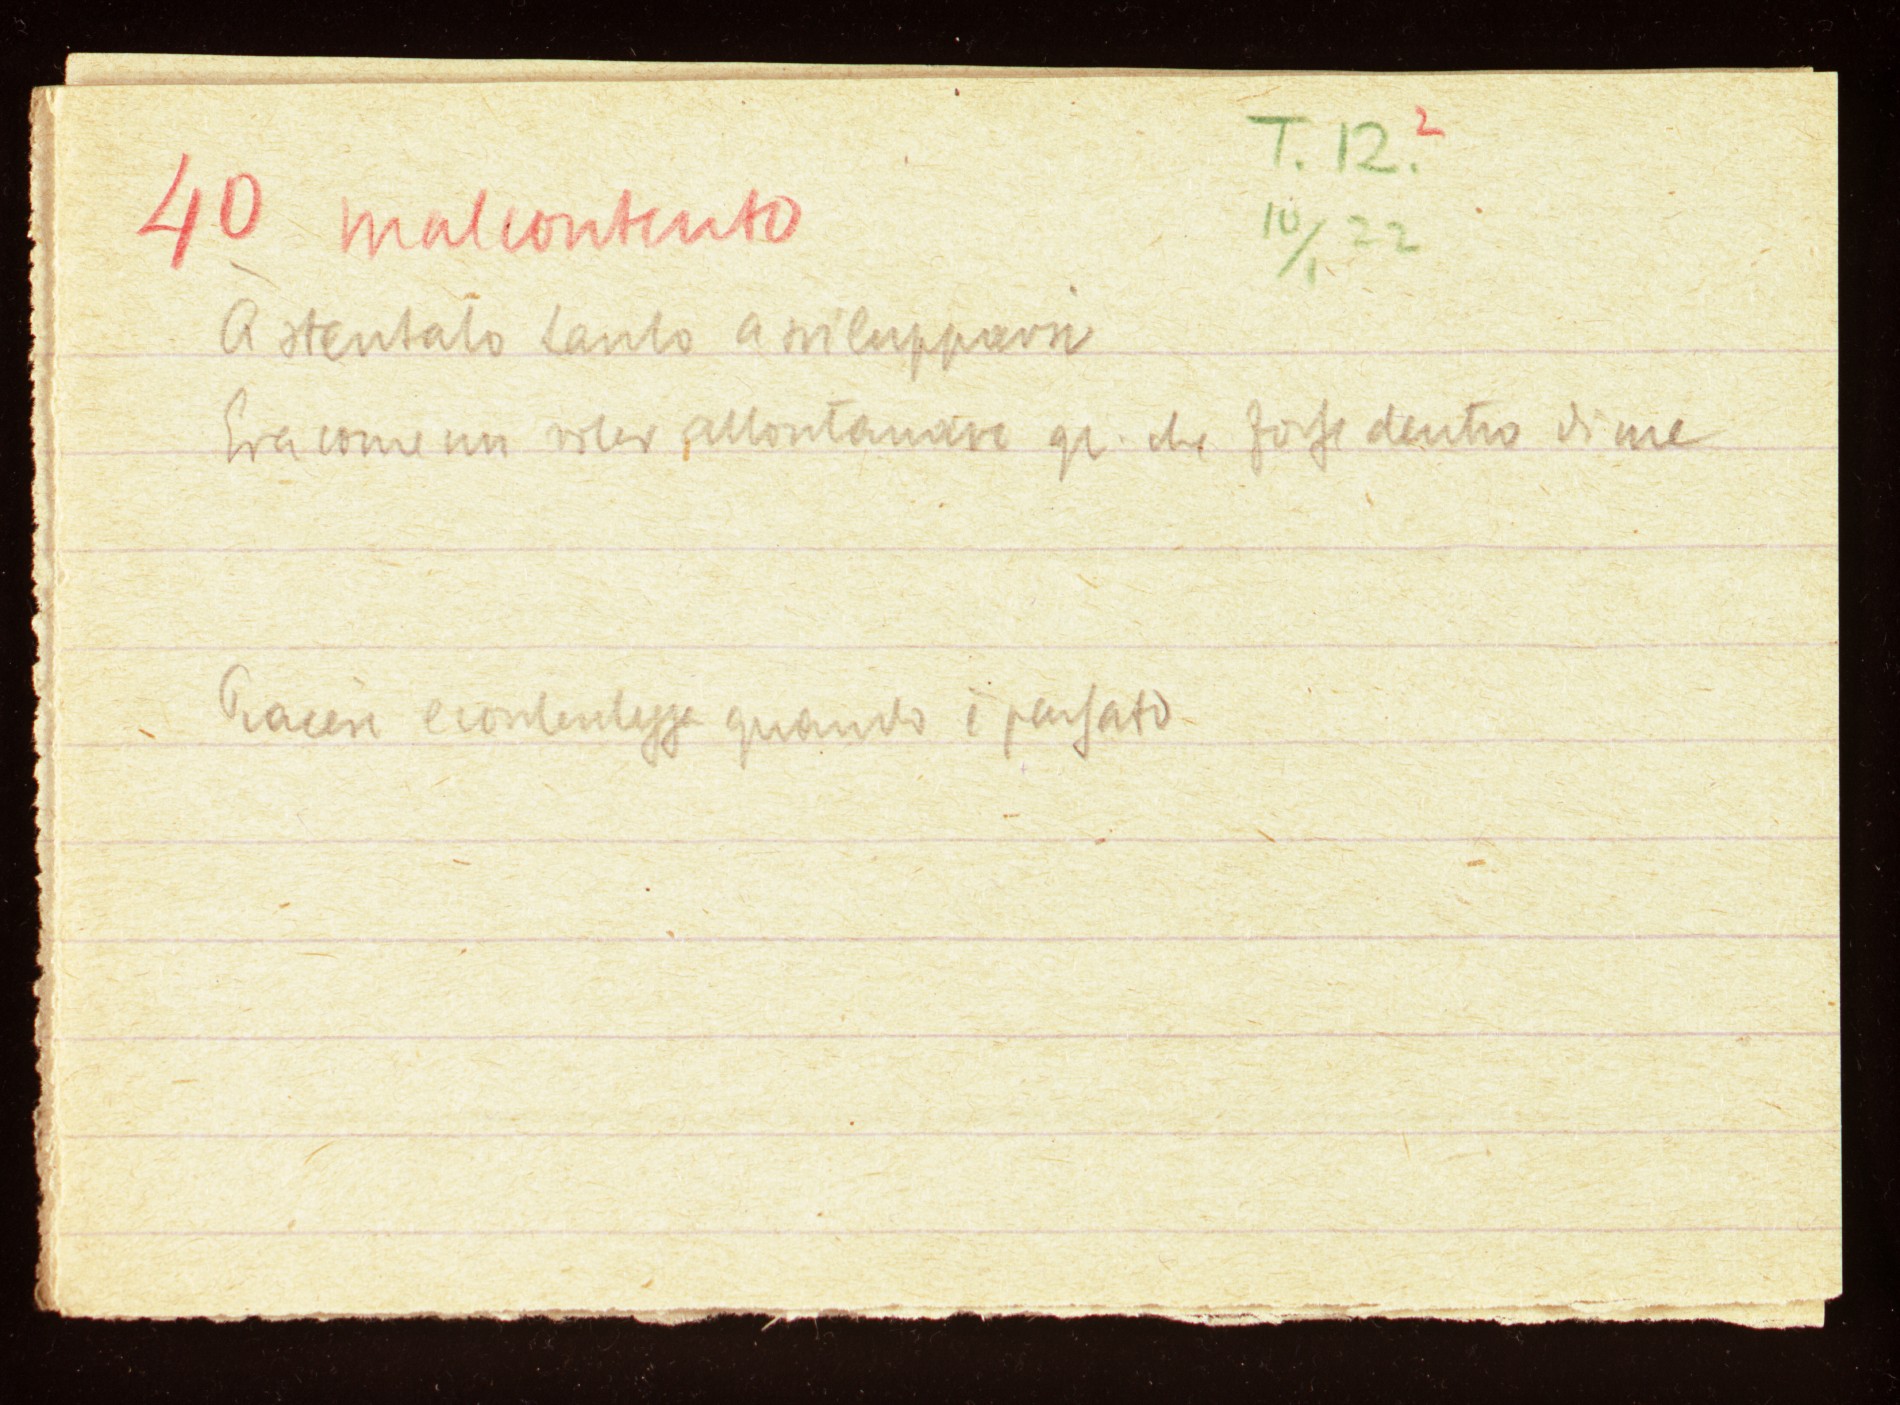 T. 12.²
40 malcontento
10/1 22
À stentato tanto a svilupparsi
Era come un voler allontanare qc. che fosse dentro di me
Piacere e contentezza quando è passato